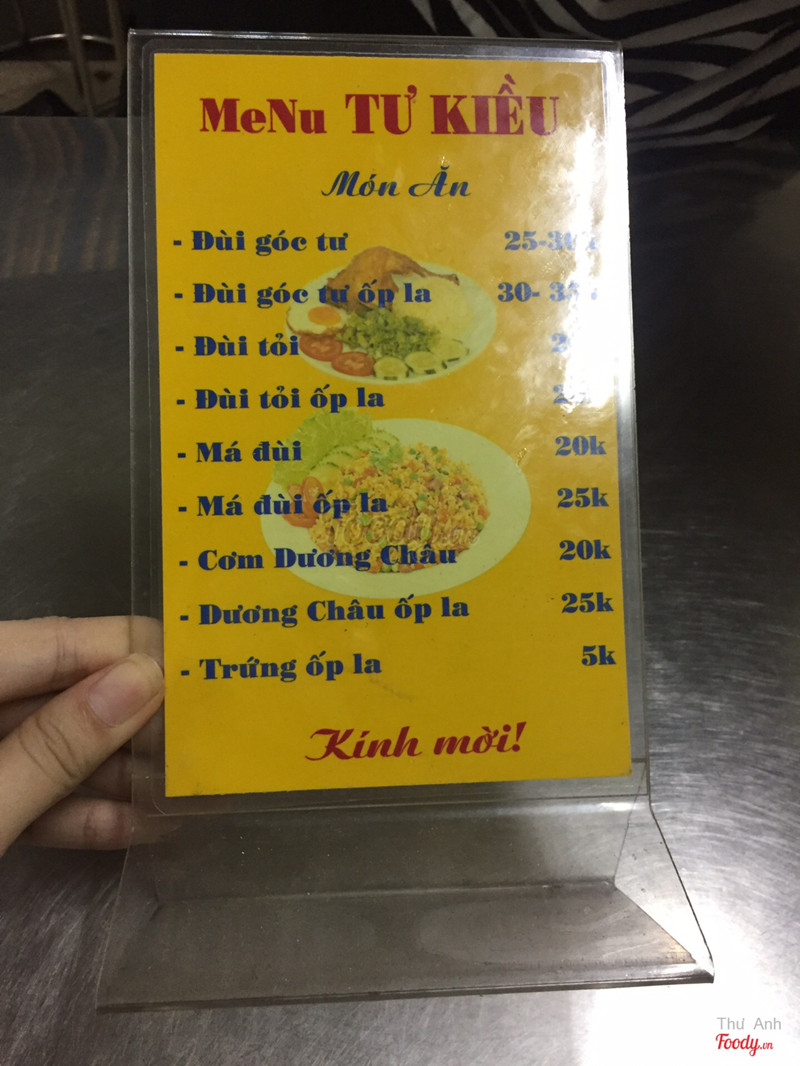 MeNu TƯ KIỀU
Món Ăn
- Đùi góc tư
- Đùi góc tư ốp la
- Đùi tỏi
- Đùi tỏi ốp la
- Má đùi 20k
- Má đùi ốp la 25k
- Cơm Dương Châu 20k
- Dương Châu ốp la 25k
- Trứng ốp la 5k
Kính mời!
Thư Anh
Foody.vn